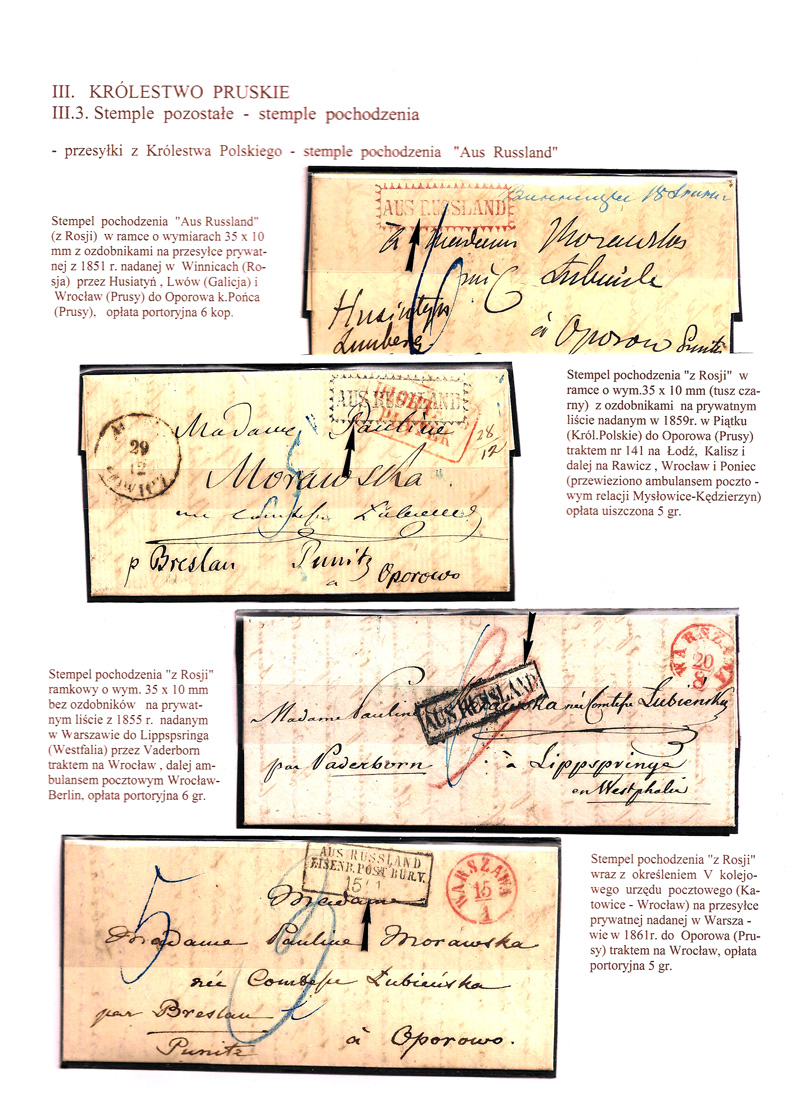 III. KRÓLESTWO PRUSKIE
III.3. Stemple pozostałe - stemple pochodzenia
- przesyłki z Królestwa Polskiego - stemple pochodzenia "Aus Russland"
Stempel pochodzenia "Aus Russland"
(z Rosji) w ramce o wymiarach 35 x 10
mm z ozdobnikami na przesyłce prywat-
nej z 1851 r. nadanej w Winnicach (Ro-
sja) przez Husiatyń , Lwów (Galicja) i
Wrocław (Prusy) do Oporowa k.Pońca
(Prusy), opłata portoryjna 6 kop.
AUS RUSSLAND
à Madame Morawska
née Lubińska
Husiatyn
Lemberg
à Oporow Punitz
6
Stempel pochodzenia "z Rosji" w
ramce o wym.35 x 10 mm (tusz cza-
rny) z ozdobnikami na prywatnym
liście nadanym w 1859r. w Piątku
(Król.Polskie) do Oporowa (Prusy)
traktem nr 141 na Łodź, Kalisz i
dalej na Rawicz , Wroclaw i Poniec
(przewieziono ambulansem poczto -
wym relacji Mysłowice-Kędzierzyn)
opłata uiszczona 5 gr.
AUS RUSSLAND
29
12
28/12
Madame Pauline
Morawska
née Comtesse Łubienska
p Breslau Punitz
a Oporowo
Stempel pochodzenia "z Rosji"
ramkowy o wym. 35 x 10 mm
bez ozdobników na prywat-
nym liście z 1855 r. nadanym
w Warszawie do Lippspsringa
(Westfalia) przez Vaderborn
traktem na Wrocław , dalej am-
bulansem pocztowym Wrocław-
Berlin, opłata portoryjna 6 gr.
WARSZAWA
20
8
AUS RUSSLAND
Madame Pauline Morawska née Comtesse Łubienska
par Paderborn à Lippspringe
en Westphalie
Stempel pochodzenia "z Rosji"
wraz z określeniem V kolejo-
wego urzędu pocztowego (Ka-
towice - Wrocław) na przesyłce
prywatnej nadanej w Warsza -
wie w 1861r. do Oporowa (Pru-
sy) traktem na Wrocław, opłata
portoryjna 5 gr.
AUS RUSSLAND
EISENB. POST BUR.V.
15 1
WARSZAWA
15
1
5
3
Madame
Madame Pauline Morawska
née Comtesse Łubieńska
par Breslau
Punitz
à Oporowo.